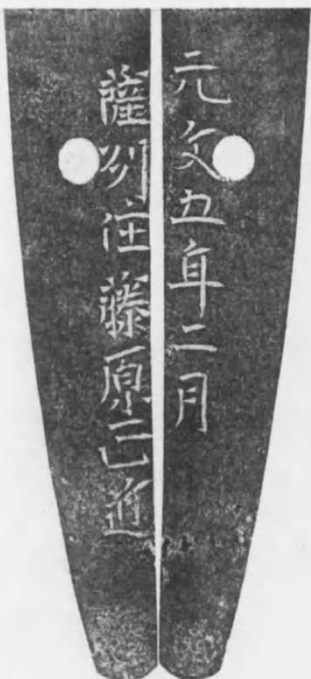 元文五年二月
薩州住藤原正近